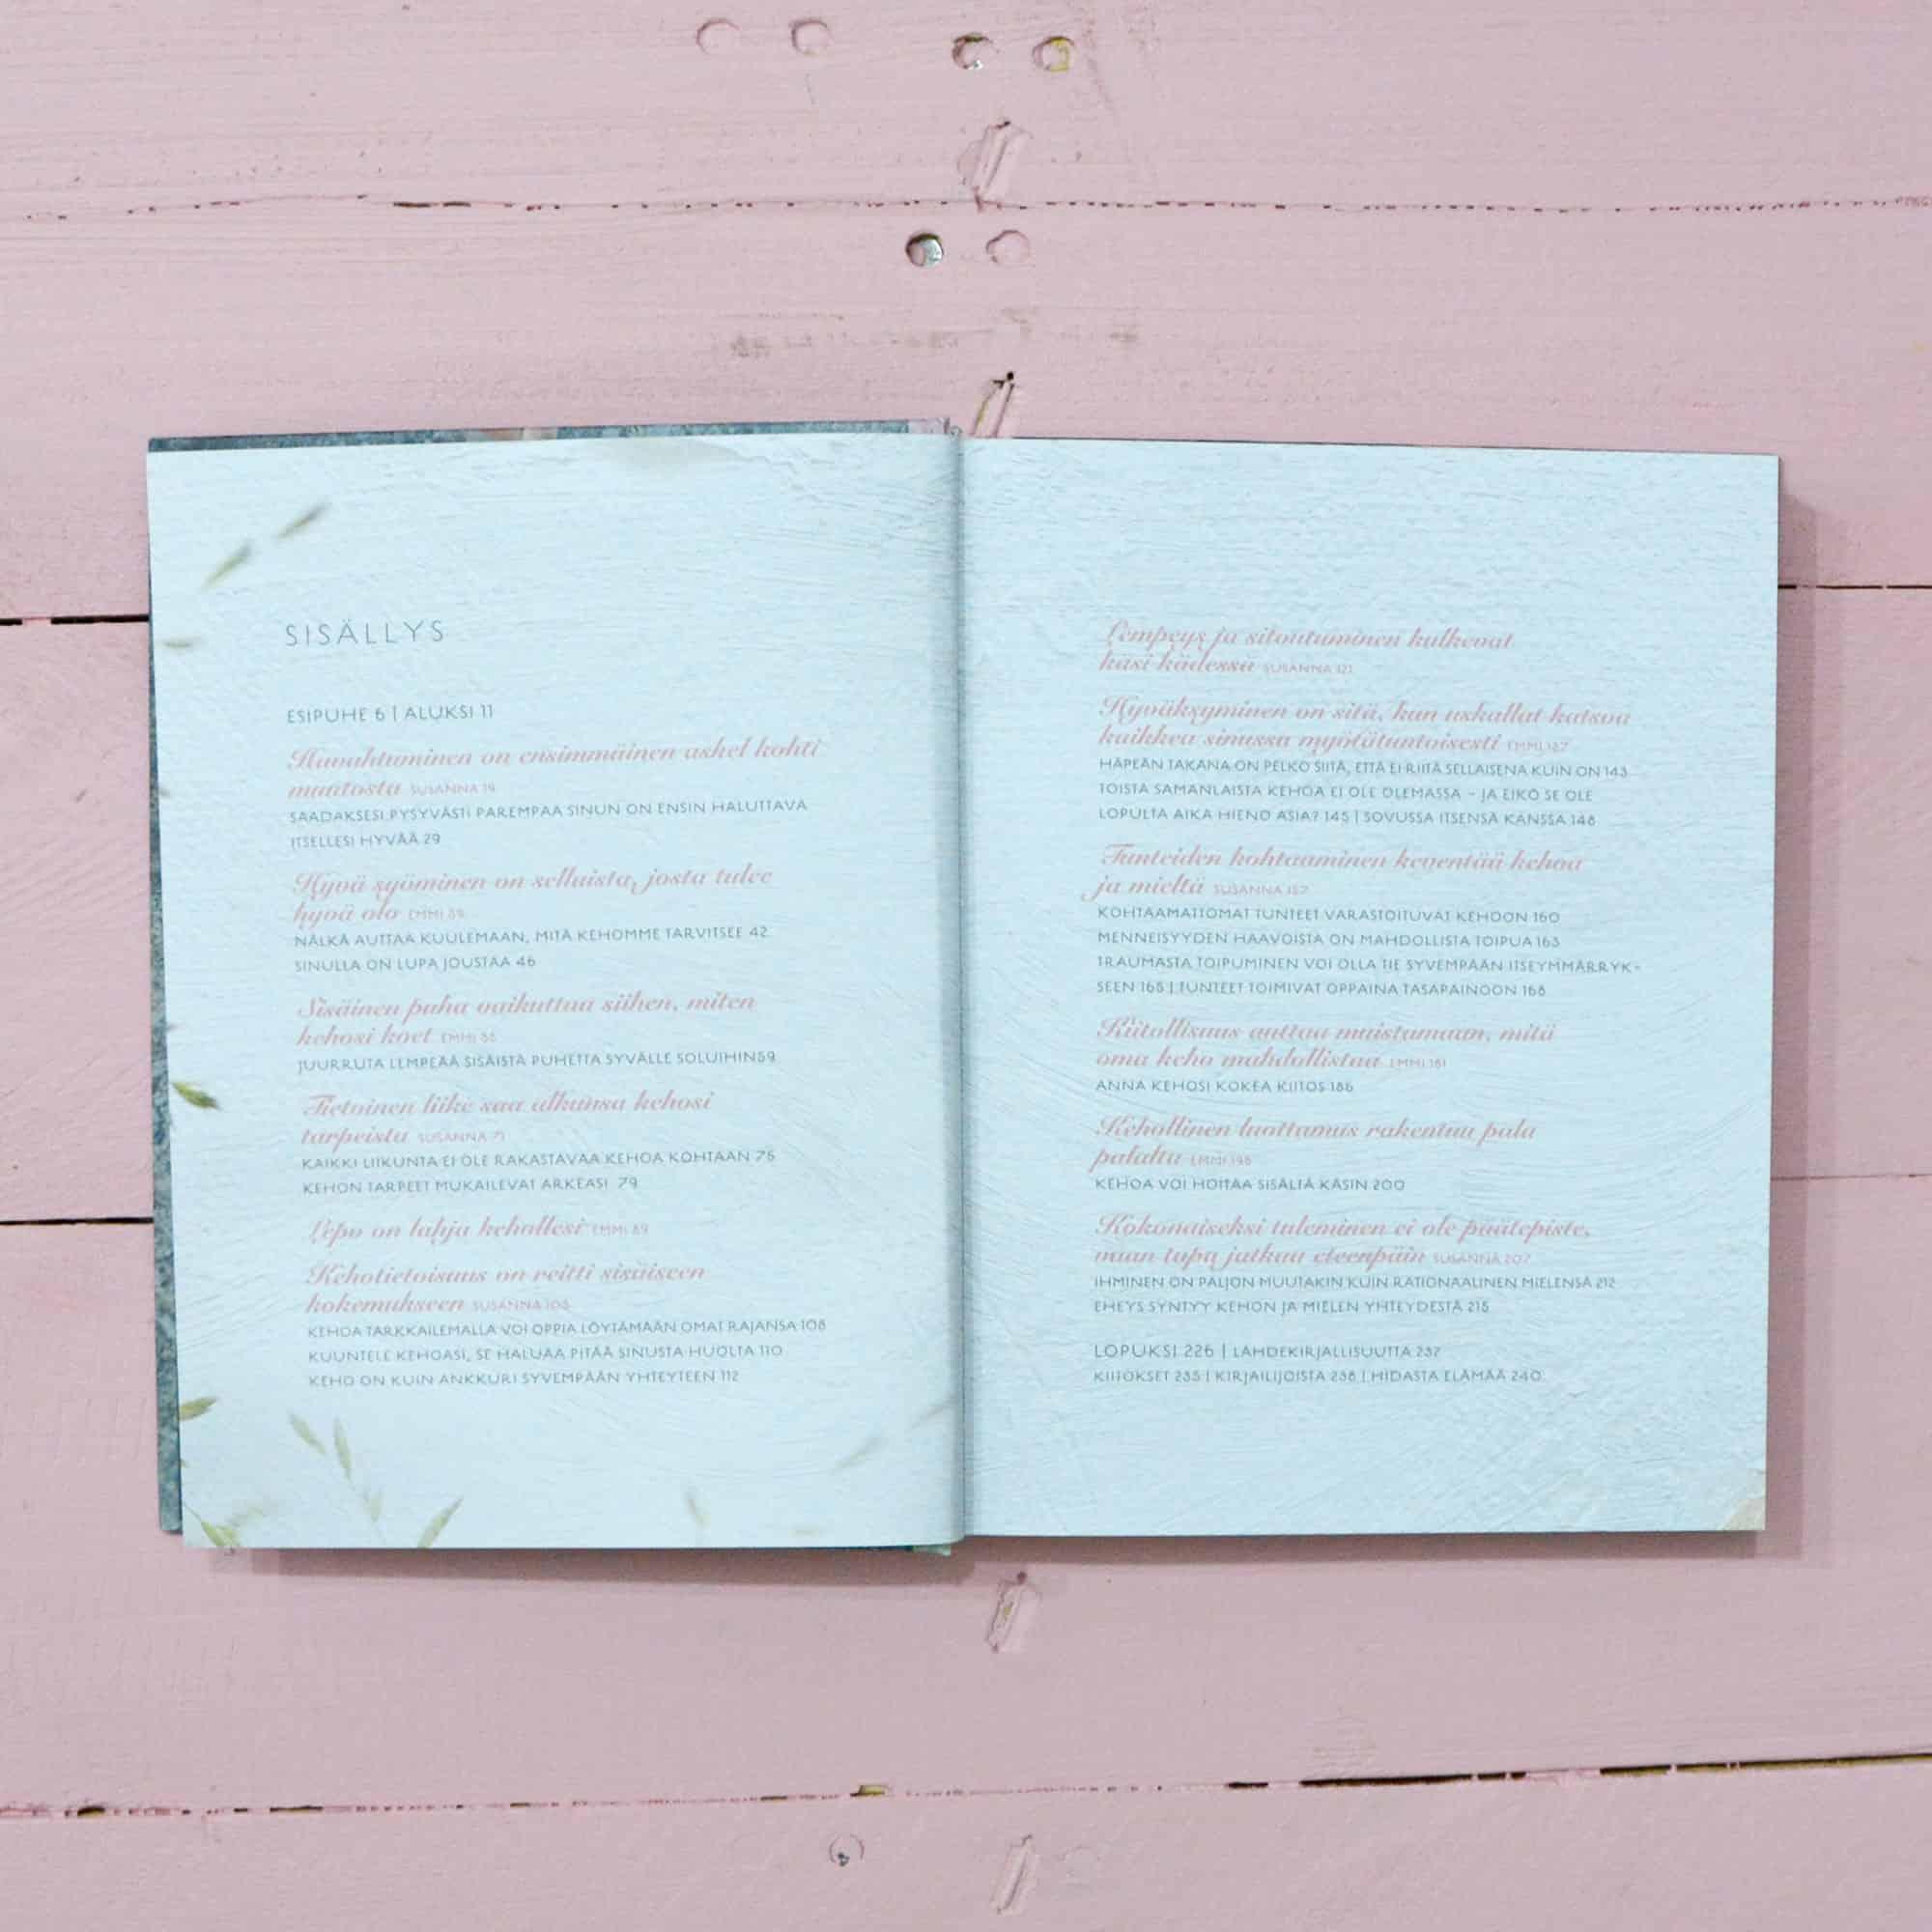 SISÄLLYS
ESIPUHE 6 | ALUKSI 11
Havahtuminen on ensimmäinen askel kohti
muutosta SUSANNA 19
SAADAKSESI PYSYVÄSTI PAREMPAA SINUN ON ENSIN HALUTTAVA
ITSELLESI HYVÄÄ 29
Hyvä syöminen on sellaista, josta tulee
hyvä olo EMMI 39
NÄLKÄ AUTTAA KUULEMAAN, MITÄ KEHOMME TARVITSEE 42
SINULLA ON LUPA JOUSTAA 46
Sisäinen puhe vaikuttaa siihen, miten
kehosi koet EMMI 55
JUURRUTA LEMPEÄÄ SISÄISTÄ PUHETTA SYVÄLLE SOLUIHIN 59
Tietoinen liike saa alkunsa kehosi
tarpeista SUSANNA 71
KAIKKI LIIKUNTA EI OLE RAKASTAVAA KEHOA KOHTAAN 75
KEHON TARPEET MUKAILEVAT ARKEASI 79
Lepo on lahja kehollesi EMMI 89
Kehotietoisuus on reitti sisäiseen
kokemukseen SUSANNA 105
KEHOA TARKKAILEMALLA VOI OPPIA LÖYTÄMÄÄN OMAT RAJANSA 108
KUUNTELE KEHOASI, SE HALUAA PITÄÄ SINUSTA HUOLTA 110
KEHO ON KUIN ANKKURI SYVEMPÄÄN YHTEYTEEN 112
Lempeys ja sitoutuminen kulkevat
käsi kädessä SUSANNA 121
Hyväksyminen on sitä, kun uskallat katsoa
kaikkea sinussa myötätuntoisesti EMMI 137
HÄPEÄN TAKANA ON PELKO SIITÄ, ETTÄ EI RIITÄ SELLAISENA KUIN ON 143
TOISTA SAMANLAISTA KEHOA EI OLE OLEMASSA – JA EIKÖ SE OLE
LOPULTA AIKA HIENO ASIA? 145 | SOVUSSA ITSENSÄ KANSSA 148
Tunteiden kohtaaminen keventää kehoa
ja mieltä SUSANNA 157
KOHTAAMATTOMAT TUNTEET VARASTOITUVAT KEHOON 160
MENNEISYYDEN HAAVOISTA ON MAHDOLLISTA TOIPUA 163
TRAUMASTA TOIPUMINEN VOI OLLA TIE SYVEMPÄÄN ITSEYMMÄRRYK-
SEEN 165 | TUNTEET TOIMIVAT OPPAINA TASAPAINOON 168
Kiitollisuus auttaa muistamaan, mitä
oma keho mahdollistaa EMMI 181
ANNA KEHOSI KOKEA KIITOS 186
Kehollinen luottamus rakentuu pala
palalta EMMI 195
KEHOA VOI HOITAA SISÄLTÄ KÄSIN 200
Kokonaiseksi tuleminen ei ole päätepiste,
vaan lupa jatkaa eteenpäin SUSANNA 207
IHMINEN ON PALJON MUUTAKIN KUIN RATIONAALINEN MIELENSÄ 212
EHEYS SYNTYY KEHON JA MIELEN YHTEYDESTÄ 215
LOPUKSI 226 | LÄHDEKIRJALLISUUTTA 237
KIITOKSET 235 | KIRJAILIJOISTA 238 | HIDASTA ELÄMÄÄ 240